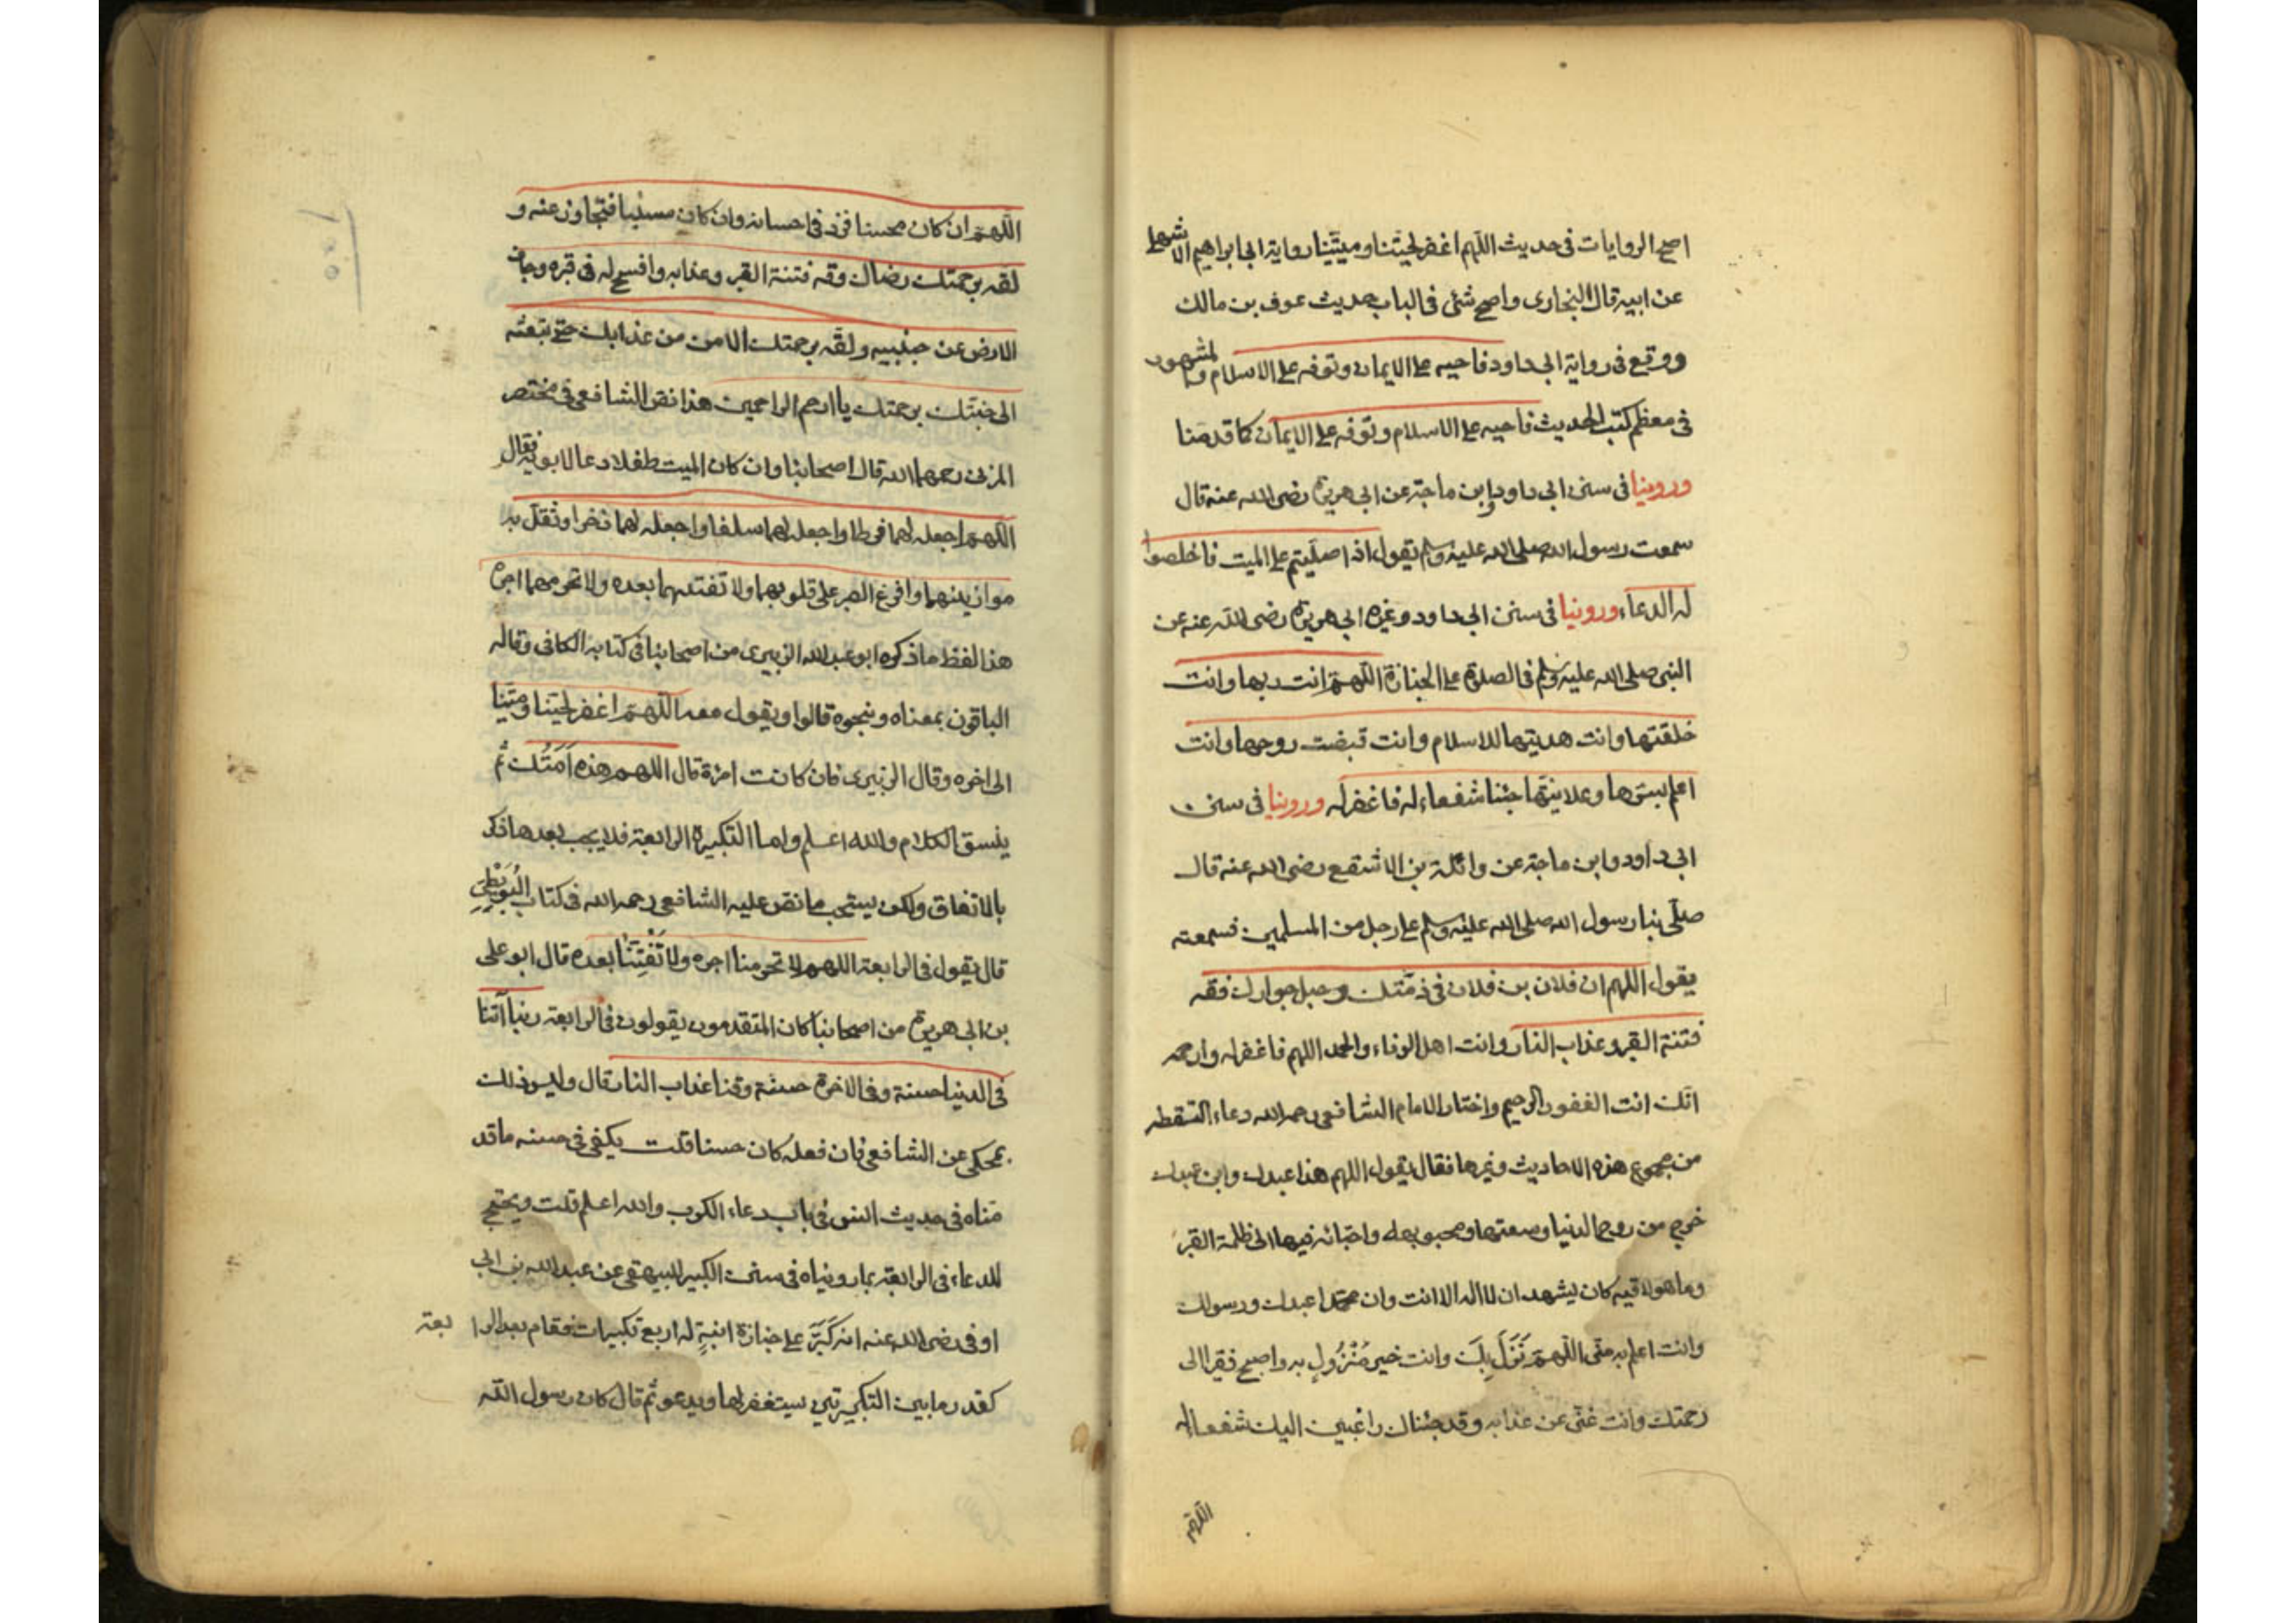 اصح الروايات فى حديث اللهم اغفر لحينا وميتنا رواية ابى ابراهيم الاشهلى
عن ابيه قال البخارى واصح شئ فى الباب حديث عوف بن مالك
ووقع فى رواية ابى داود فاحيه على الايمان وتوفه على الاسلام والمشهور
فى معظم كتب الحديث فاحيه على الاسلام وتوفه على الايمان كما قدمنا
وروينا فى سنن ابى داود وابن ماجة عن ابى هريرة رضى الله عنه قال
سمعت رسول الله صلى الله عليه وسلم يقول اذا صليتم على الميت فاخلصوا
له الدعاء وروينا فى سنن ابى داود وغيره ابى هريرة رضى الله عنه عن
النبى صلى الله عليه وسلم فى الصلوة على الجنازة اللهم انت ربها وانت
خلقتها وانت هديتها للاسلام وانت قبضت روحها وانت
اعلم بسرها وعلانيتها جئنا شفعاء له فاغفر له وروينا فى سنن
ابى داود وابن ماجة عن واثلة بن الاشقع رضى الله عنه قال
صلى بنا رسول الله صلى الله عليه وسلم على رجل من المسلمين فسمعته
يقول اللهم ان فلان بن فلان فى ذمتك وحبل جوارك فقه
فتنة القبر وعذاب النار وانت اهل الوفاء والحمد اللهم فاغفر له وارحمه
انك انت الغفور الرحيم واختار الامام الشافعى رحمه الله دعاء التقطه
من مجموع هذه الاحاديث وغيرها فقال يقول اللهم هذا عبدك وابن عبدك
خرج من روح الدنيا وسعتها ومحبوبه واحبائه فيها الى ظلمة القبر
وما هو لاقيه كان يشهد ان لا اله الا انت وان محمدا عبدك ورسولك
وانت اعلم به منى اللهم نَزَلَ بِكَ وانت خير مَنْزُولٍ به واصبح فقيرا الى
رحمتك وانت غنى عن عذابه وقد جئناك راغبين اليك شفعاء له
اللهم
اللهم ان كان محسنا فزد فى احسانه وان كان مسيئا فتجاوز عنه و
لقه برحمتك رضاك وقه فتنة القبر وعذابه وافسح له فى قبره وجاف
الارض عن جنبيه ولقه برحمتك الامن من عذابك حتى تبعثه
الى جنتك برحمتك يا ارحم الراحمين هذا نص الشافعى فى مختصر
المزنى رحمهما الله قال اصحابنا وان كان الميت طفلا دعا لابويه فقال
اللهم اجعله لهما فرطا واجعله لهما سلفا واجعله لهما ذخرا وثقل به
موازينهما وافرغ الصبر على قلوبهما ولا تفتنهما بعده ولا تحرمهما اجره
هذا لفظ ما ذكره ابو عبد الله الزبيرى من اصحابنا فى كتابه الكافى وقاله
الباقون بمعناه وبنحوه قالوا ويقول معه اللهم اغفر لحينا وميتنا
الى اخره وقال الزبيرى فان كانت امرأة قال اللهم هذه اَمَتُك ثم
ينسق الكلام والله اعلم واما التكبيرة الرابعة فلا يجب بعدها ذكر
بالاتفاق ولكن يستحب ما نص عليه الشافعى رحمه الله فى كتاب البُوَيْطِىِّ
قال يقول فى الرابعة اللهم لا تحرمنا اجره ولا تَفْتِنَّا بعده قال ابو على
بن ابى هريرة من اصحابنا كان المتقدمون يقولون فى الرابعة ربنا آتنا
فى الدنيا حسنة وفى الاخرة حسنة وقنا عذاب النار قال وليس ذلك
بمحكى عن الشافعى فان فعله كان حسنا قلت يكفى فى حسنه ما قد
مناه فى حديث انس فى باب دعاء الكرب والله اعلم قلت ويحتج
للدعاء فى الرابعة بما رويناه فى سنن الكبير للبيهقى عن عبد الله بن ابى
اوفى رضى الله عنه انه كَبَّرَ على جنازة ابنةٍ له اربع تكبيرات فقام بعد الرابعة
كقدر ما بين التكبيرتين يستغفر لها ويدعو ثم قال كان رسول الله